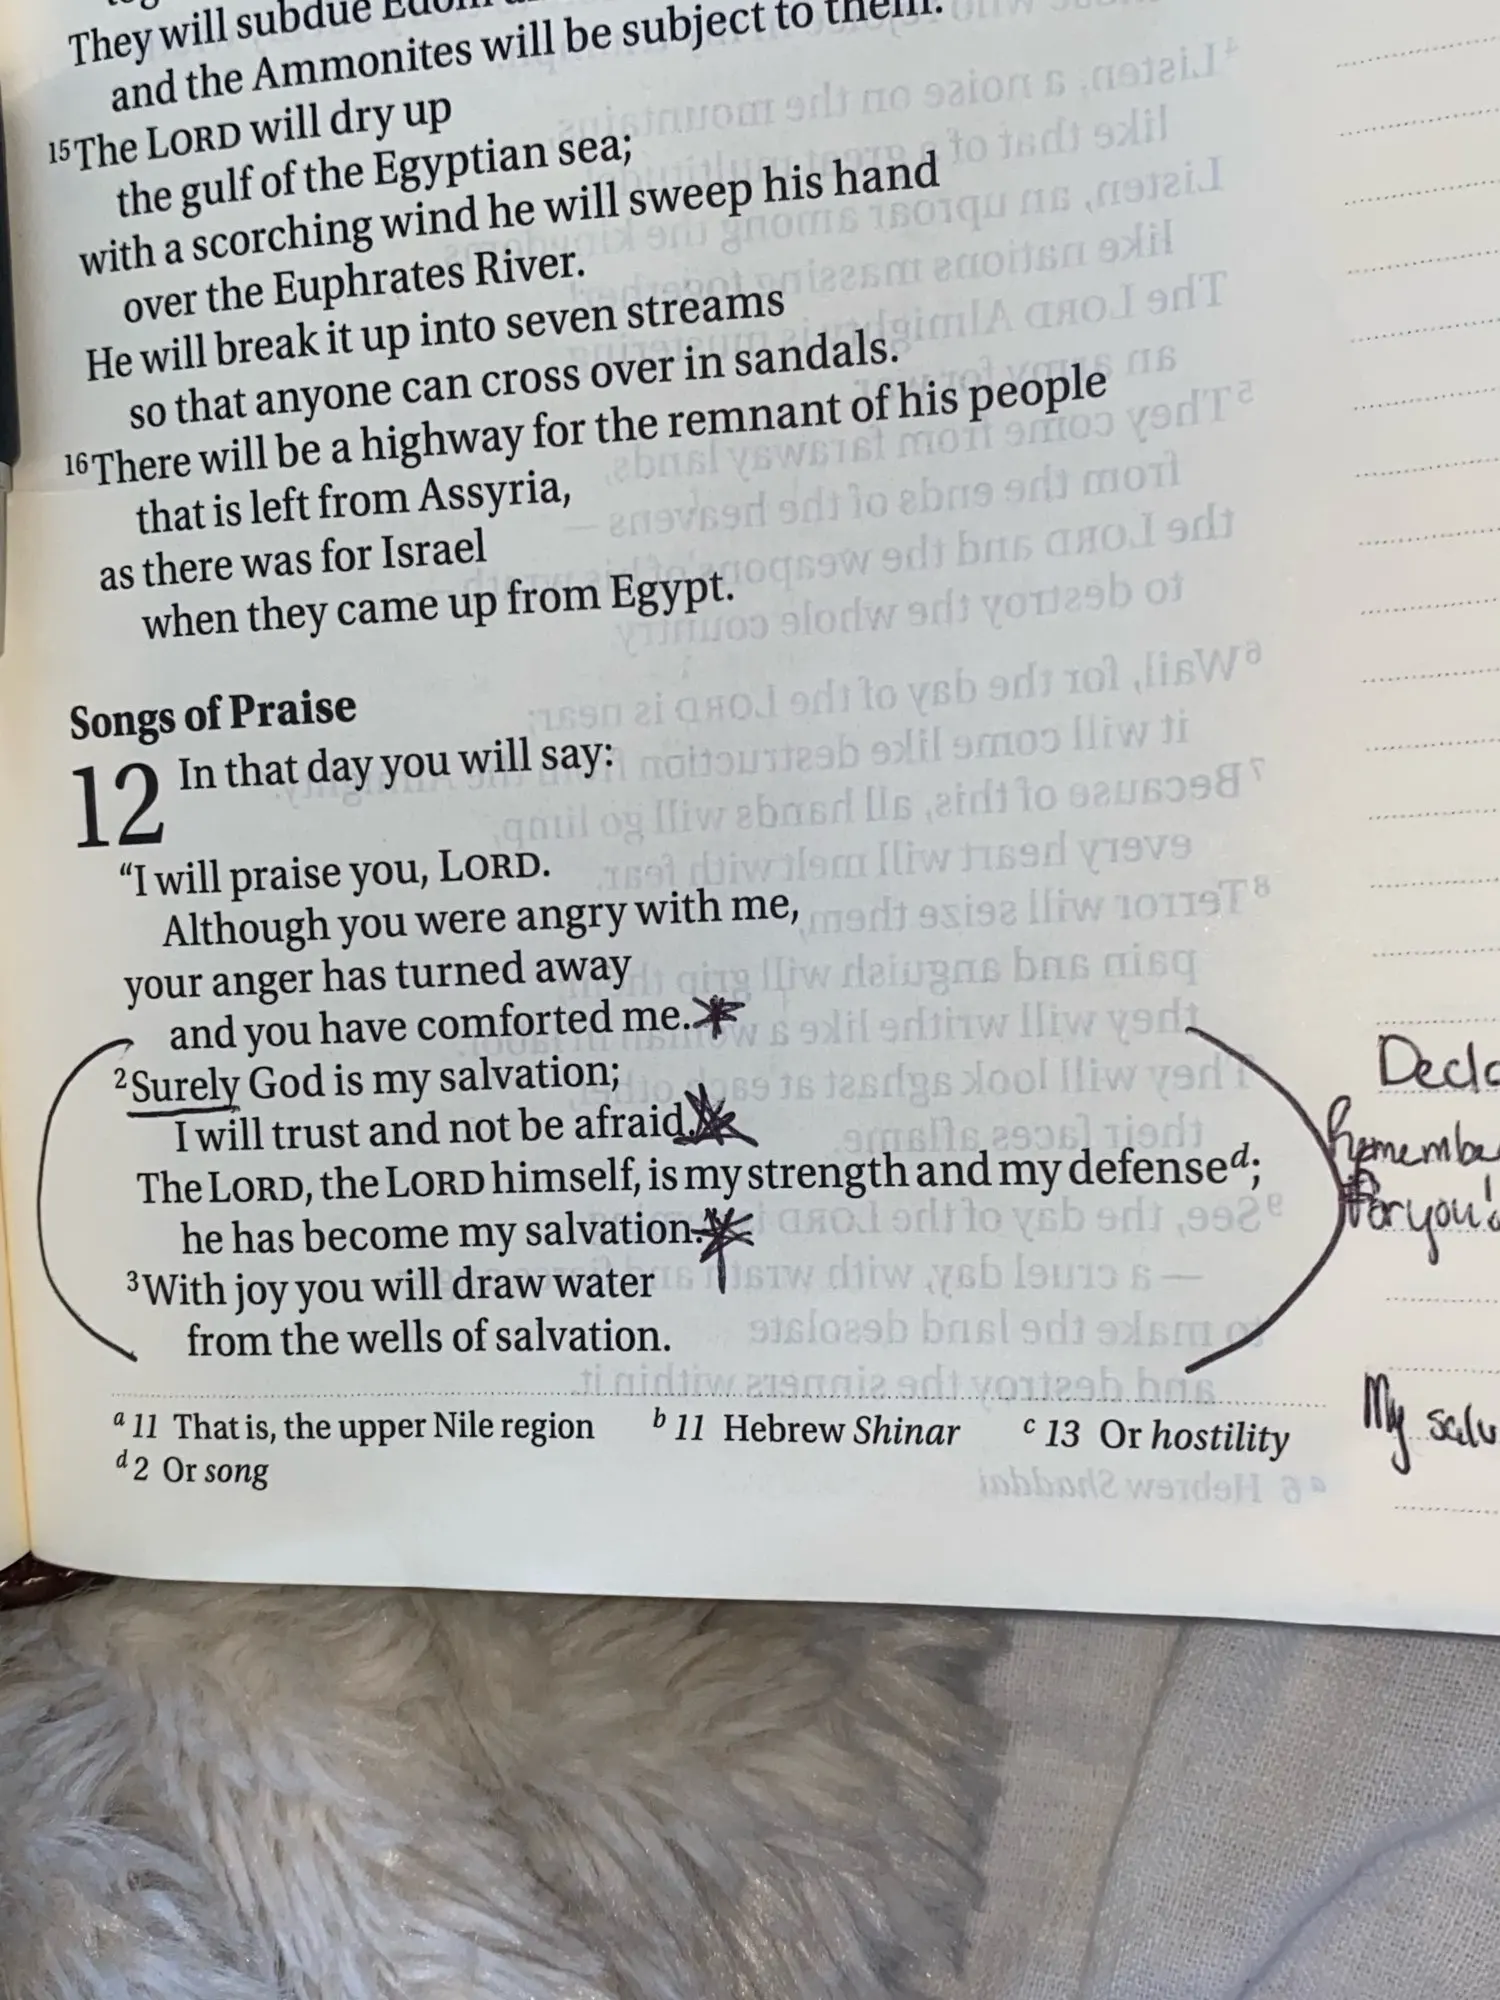 They will subdue Edom
and the Ammonites will be subject to them.
15 The LORD will dry up
the gulf of the Egyptian sea;
with a scorching wind he will sweep his hand
over the Euphrates River.
He will break it up into seven streams
so that anyone can cross over in sandals.
16 There will be a highway for the remnant of his people
that is left from Assyria,
as there was for Israel
when they came up from Egypt.
Songs of Praise
12 In that day you will say:
“I will praise you, LORD.
Although you were angry with me,
your anger has turned away
and you have comforted me.
2 Surely God is my salvation;
I will trust and not be afraid.
The LORD, the LORD himself, is my strength and my defense d;
he has become my salvation.
3 With joy you will draw water
from the wells of salvation.
a 11 That is, the upper Nile region b 11 Hebrew Shinar c 13 Or hostility
d 2 Or song
for you!
My